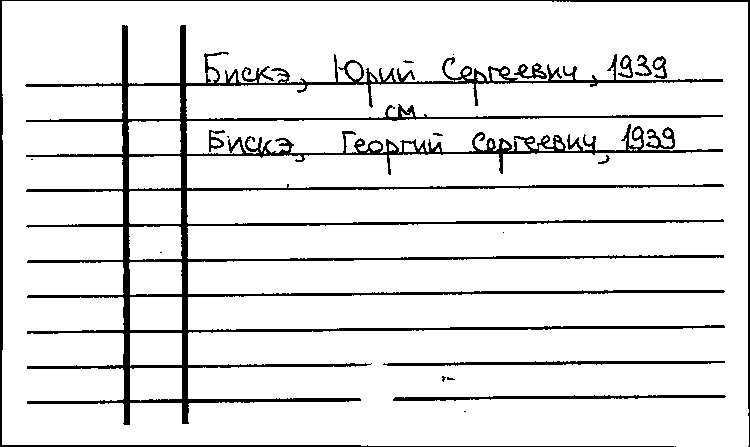 Бискэ, Юрий Сергеевич, 1939
см.
Бискэ, Георгий Сергеевич, 1939